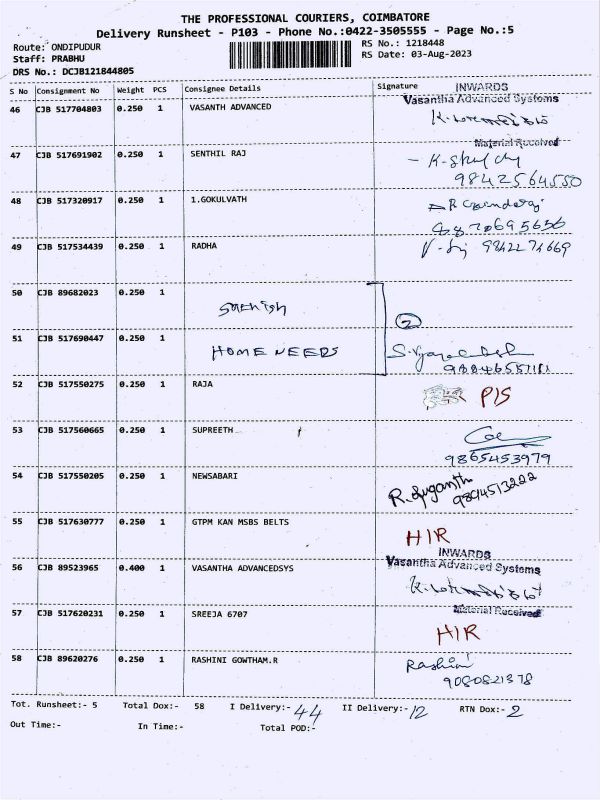 THE PROFESSIONAL COURIERS, COIMBATORE
Delivery Runsheet - P103 - Phone No.:0422-3505555 - Page No.:5
Route: ONDIPUDUR
RS No.: 1218448
Staff: PRABHU
RS Date: 03-Aug-2023
DRS No.: DCJB121844805
S No Consignment No Weight PCS Consignee Details Signature
INWARDS
46 CJB 517704803 0.250 1 VASANTH ADVANCED Vasantha Advanced Systems
Material Received
47 CJB 517691902 0.250 1 SENTHIL RAJ
9842564550
48 CJB 517320917 0.250 1 1.GOKULVATH
49 CJB 517534439 0.250 1 RADHA
50 CJB 89682023 0.250 1
2
51 CJB 517690447 0.250 1 HOME NEEDS
52 CJB 517550275 0.250 1 RAJA
P/S
53 CJB 517560665 0.250 1 SUPREETH
9865453979
54 CJB 517550205 0.250 1 NEWSABARI
R. Suganth
9894513222
55 CJB 517630777 0.250 1 GTPM KAN MSBS BELTS
H/R
INWARDS
56 CJB 89523965 0.400 1 VASANTHA ADVANCEDSYS Vasantha Advanced Systems
Material Received
57 CJB 517620231 0.250 1 SREEJA 6707
H/R
58 CJB 89620276 0.250 1 RASHINI GOWTHAM.R Rashini
9080821378
Tot. Runsheet:- 5 Total Dox:- 58 I Delivery:- 44 II Delivery:- 12 RTN Dox:- 2
Out Time:- In Time:- Total POD:-